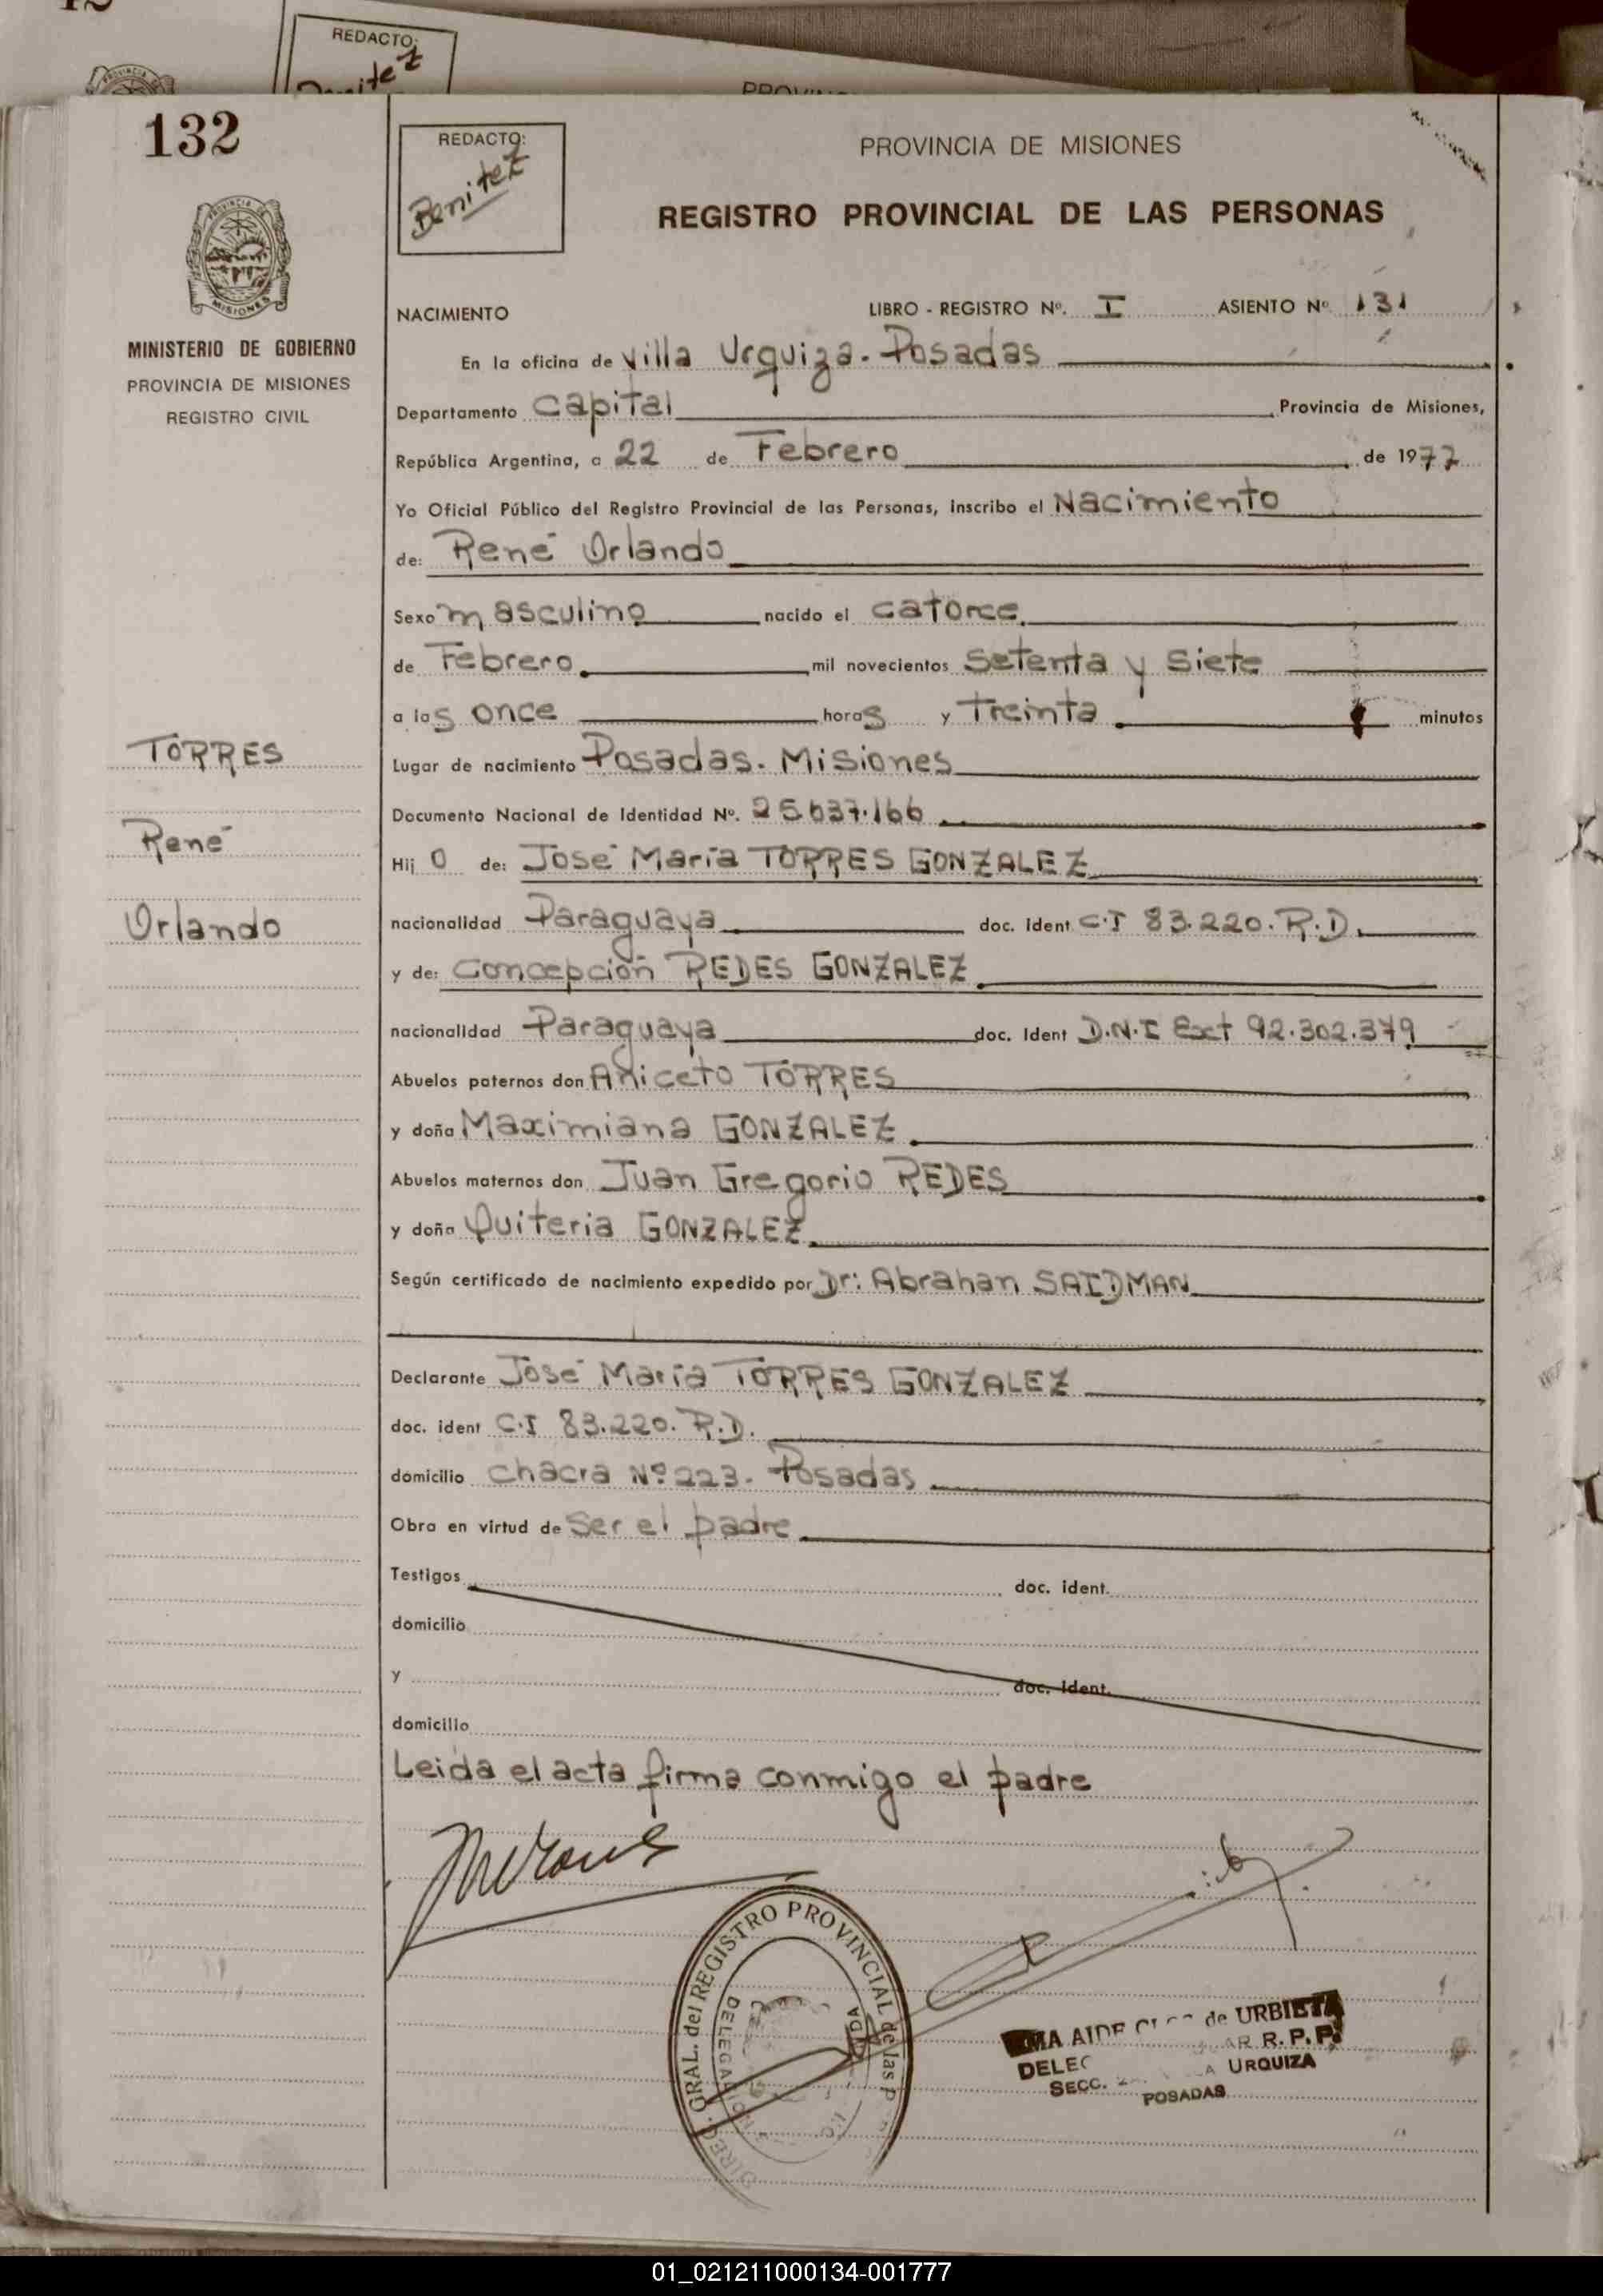 REDACTO:
Benitez
132
REDACTO:
Benitez
PROVINCIA DE MISIONES
REGISTRO PROVINCIAL DE LAS PERSONAS
MISIONES
MINISTERIO DE GOBIERNO
PROVINCIA DE MISIONES
REGISTRO CIVIL
NACIMIENTO LIBRO - REGISTRO Nº. I ASIENTO Nº 131
En la oficina de Villa Urquiza. Posadas
Departamento Capital Provincia de Misiones,
República Argentina, a 22 de Febrero de 1977
Yo Oficial Público del Registro Provincial de las Personas, inscribo el Nacimiento
de: René Orlando
Sexo masculino nacido el catorce
de Febrero mil novecientos Setenta y Siete
a las once horas y Treinta minutos
TORRES
René
Orlando
Lugar de nacimiento Posadas. Misiones
Documento Nacional de Identidad Nº. 25637.166
Hij o de: José María TORRES GONZALEZ
nacionalidad Paraguaya doc. Ident C.I 83.220. R.D.
y de: Concepción REDES GONZALEZ
nacionalidad Paraguaya doc. Ident D.N.I Ext 92.302.379
Abuelos paternos don Aniceto TORRES
y doña Maximiana GONZALEZ
Abuelos maternos don Juan Gregorio REDES
y doña Quiteria GONZALEZ
Según certificado de nacimiento expedido por Dr: Abrahan SAIDMAN
Declarante José María TORRES GONZALEZ
doc. ident C.I 83.220. R.D.
domicilio chacra Nº 223. Posadas
Obra en virtud de Ser el padre
Testigos doc. ident.
domicilio
y doc. ident.
domicilio
Leida el acta firma conmigo el padre
GRAL. del REGISTRO PROVINCIAL de las
de URBIETA
R. P. P.
URQUIZA
SECC.
POSADAS
01_021211000134-001777